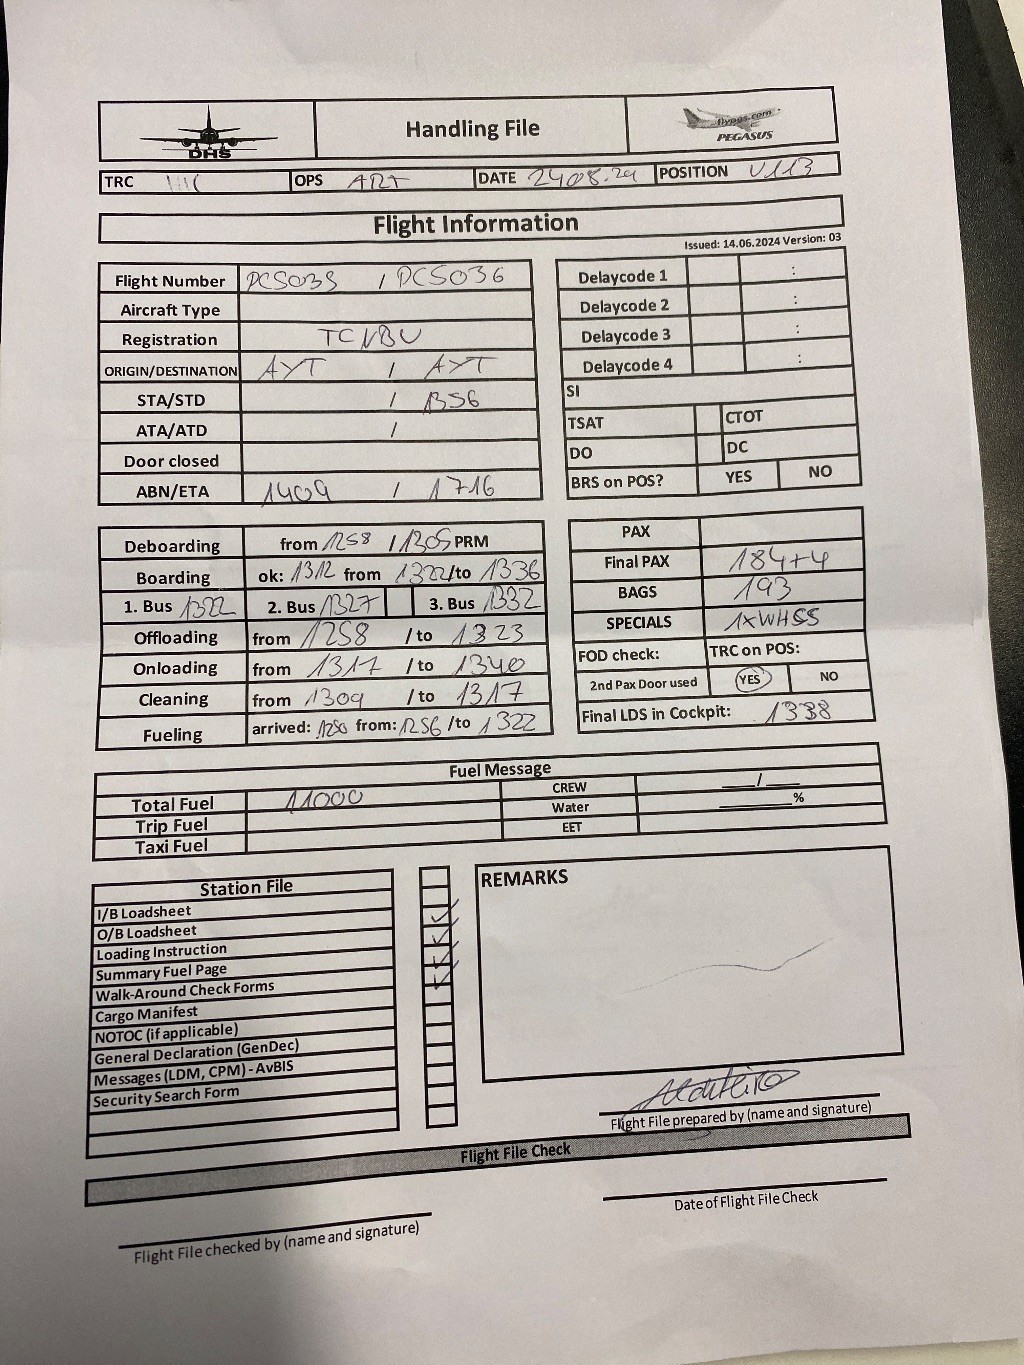 DHS
Handling File
flypgs.com
PEGASUS
TRC
OPS ART
DATE 2408.24
POSITION V113
Flight Information
Issued: 14.06.2024 Version: 03
Flight Number PC5035 / PC5036
Aircraft Type
Registration TCNBU
ORIGIN/DESTINATION AYT / AYT
STA/STD / 1356
ATA/ATD /
Door closed
ABN/ETA 1409 / 1716
Delaycode 1 :
Delaycode 2 :
Delaycode 3 :
Delaycode 4 :
SI
TSAT CTOT
DO DC
BRS on POS? YES NO
Deboarding from 1258 / 1305 PRM
Boarding ok: 1312 from 1322/to 1336
1. Bus 1322 2. Bus 1327 3. Bus 1332
Offloading from 1258 / to 1323
Onloading from 1317 / to 1340
Cleaning from 1309 / to 1317
Fueling arrived: 1250 from: 1256 / to 1322
PAX
Final PAX 184+4
BAGS 193
SPECIALS 1xWHSS
FOD check: TRC on POS:
2nd Pax Door used YES NO
Final LDS in Cockpit: 1338
Fuel Message
Total Fuel 11000 CREW ___/___
Trip Fuel Water ______%
Taxi Fuel EET
Station File
I/B Loadsheet
O/B Loadsheet
Loading Instruction
Summary Fuel Page
Walk-Around Check Forms
Cargo Manifest
NOTOC (if applicable)
General Declaration (GenDec)
Messages (LDM, CPM) - AvBIS
Security Search Form
REMARKS
Flight File prepared by (name and signature)
Flight File Check
Flight File checked by (name and signature)
Date of Flight File Check